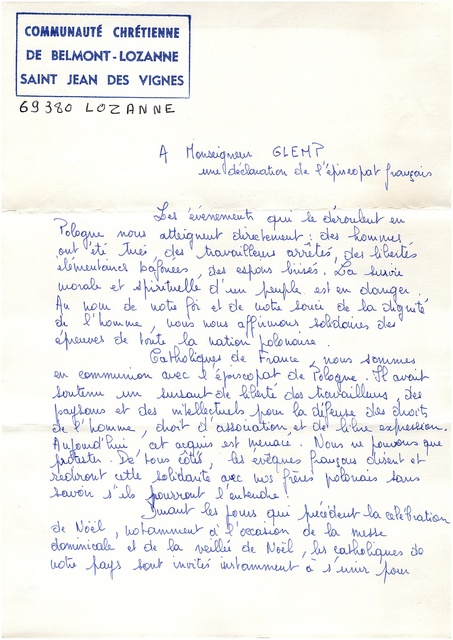 COMMUNAUTÉ CHRÉTIENNE
DE BELMONT-LOZANNE
SAINT JEAN DES VIGNES
69380 LOZANNE
A Monseigneur GLEMP
une déclaration de l'épiscopat français
Les événements qui se déroulent en
Pologne nous atteignent directement : des hommes
ont été tués, des travailleurs arrêtés, des libertés
élémentaires bafouées, des espoirs brisés. La survie
morale et spirituelle d'un peuple est en danger.
Au nom de notre foi et de notre souci de la dignité
de l'homme, nous nous affirmons solidaires des
épreuves de toute la nation polonaise.
Catholiques de France, nous sommes
en communion avec l'épiscopat de Pologne. Il avait
soutenu un sursaut de liberté des travailleurs, des
paysans et des intellectuels pour la défense des droits
de l'homme, droit d'association et de libre expression.
Aujourd'hui, cet acquis est menacé. Nous ne pouvons que
protester. De tous côtés, les évêques français disent et
rediront cette solidarité avec nos frères polonais sans
savoir s'ils pourront l'entendre !
Durant les jours qui précèdent la célébration
de Noël, notamment à l'occasion de la messe
dominicale et de la veillée de Noël, les catholiques de
notre pays sont invités instamment à s'unir pour